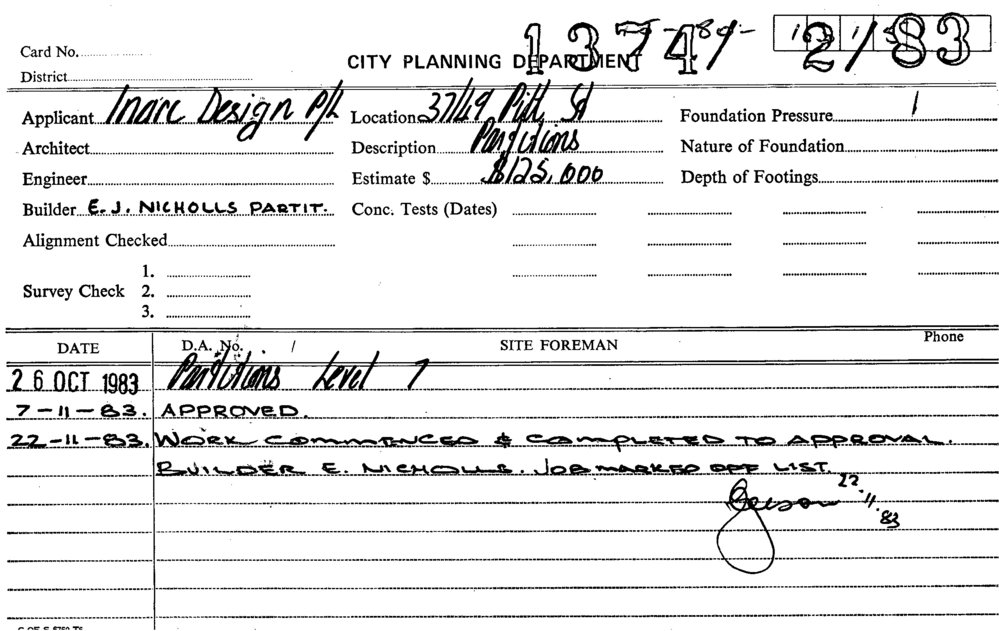 Card No.
13741
2/83
CITY PLANNING DEPARTMENT
District
Applicant Inarc Design P/L
Location 37/49 Pitt St
Foundation Pressure
Architect
Description Partitions
Nature of Foundation
Engineer
Estimate $ $125,000
Depth of Footings
Builder E.J. NICHOLLS PARTIT.
Conc. Tests (Dates)
Alignment Checked
Survey Check
1.
2.
3.
DATE
D.A. No. /
SITE FOREMAN
Phone
26 OCT 1983 Partitions Level 7
7-11-83. APPROVED.
22-11-83. WORK COMMENCED & COMPLETED TO APPROVAL.
BUILDER E. NICHOLLS. JOB MARKED OFF LIST.
22.11.83